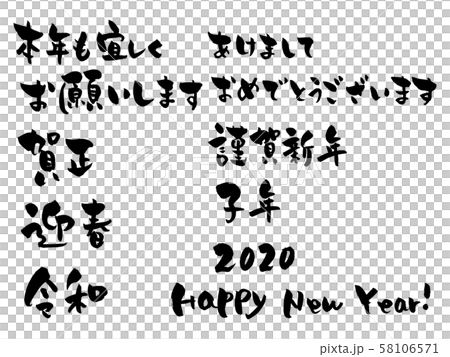 本年も宜しく
お願いします
賀正
迎春
令和
あけまして
おめでとうございます
謹賀新年
子年
2020
Happy New Year!
PIXTA
pixta.jp - 58106571